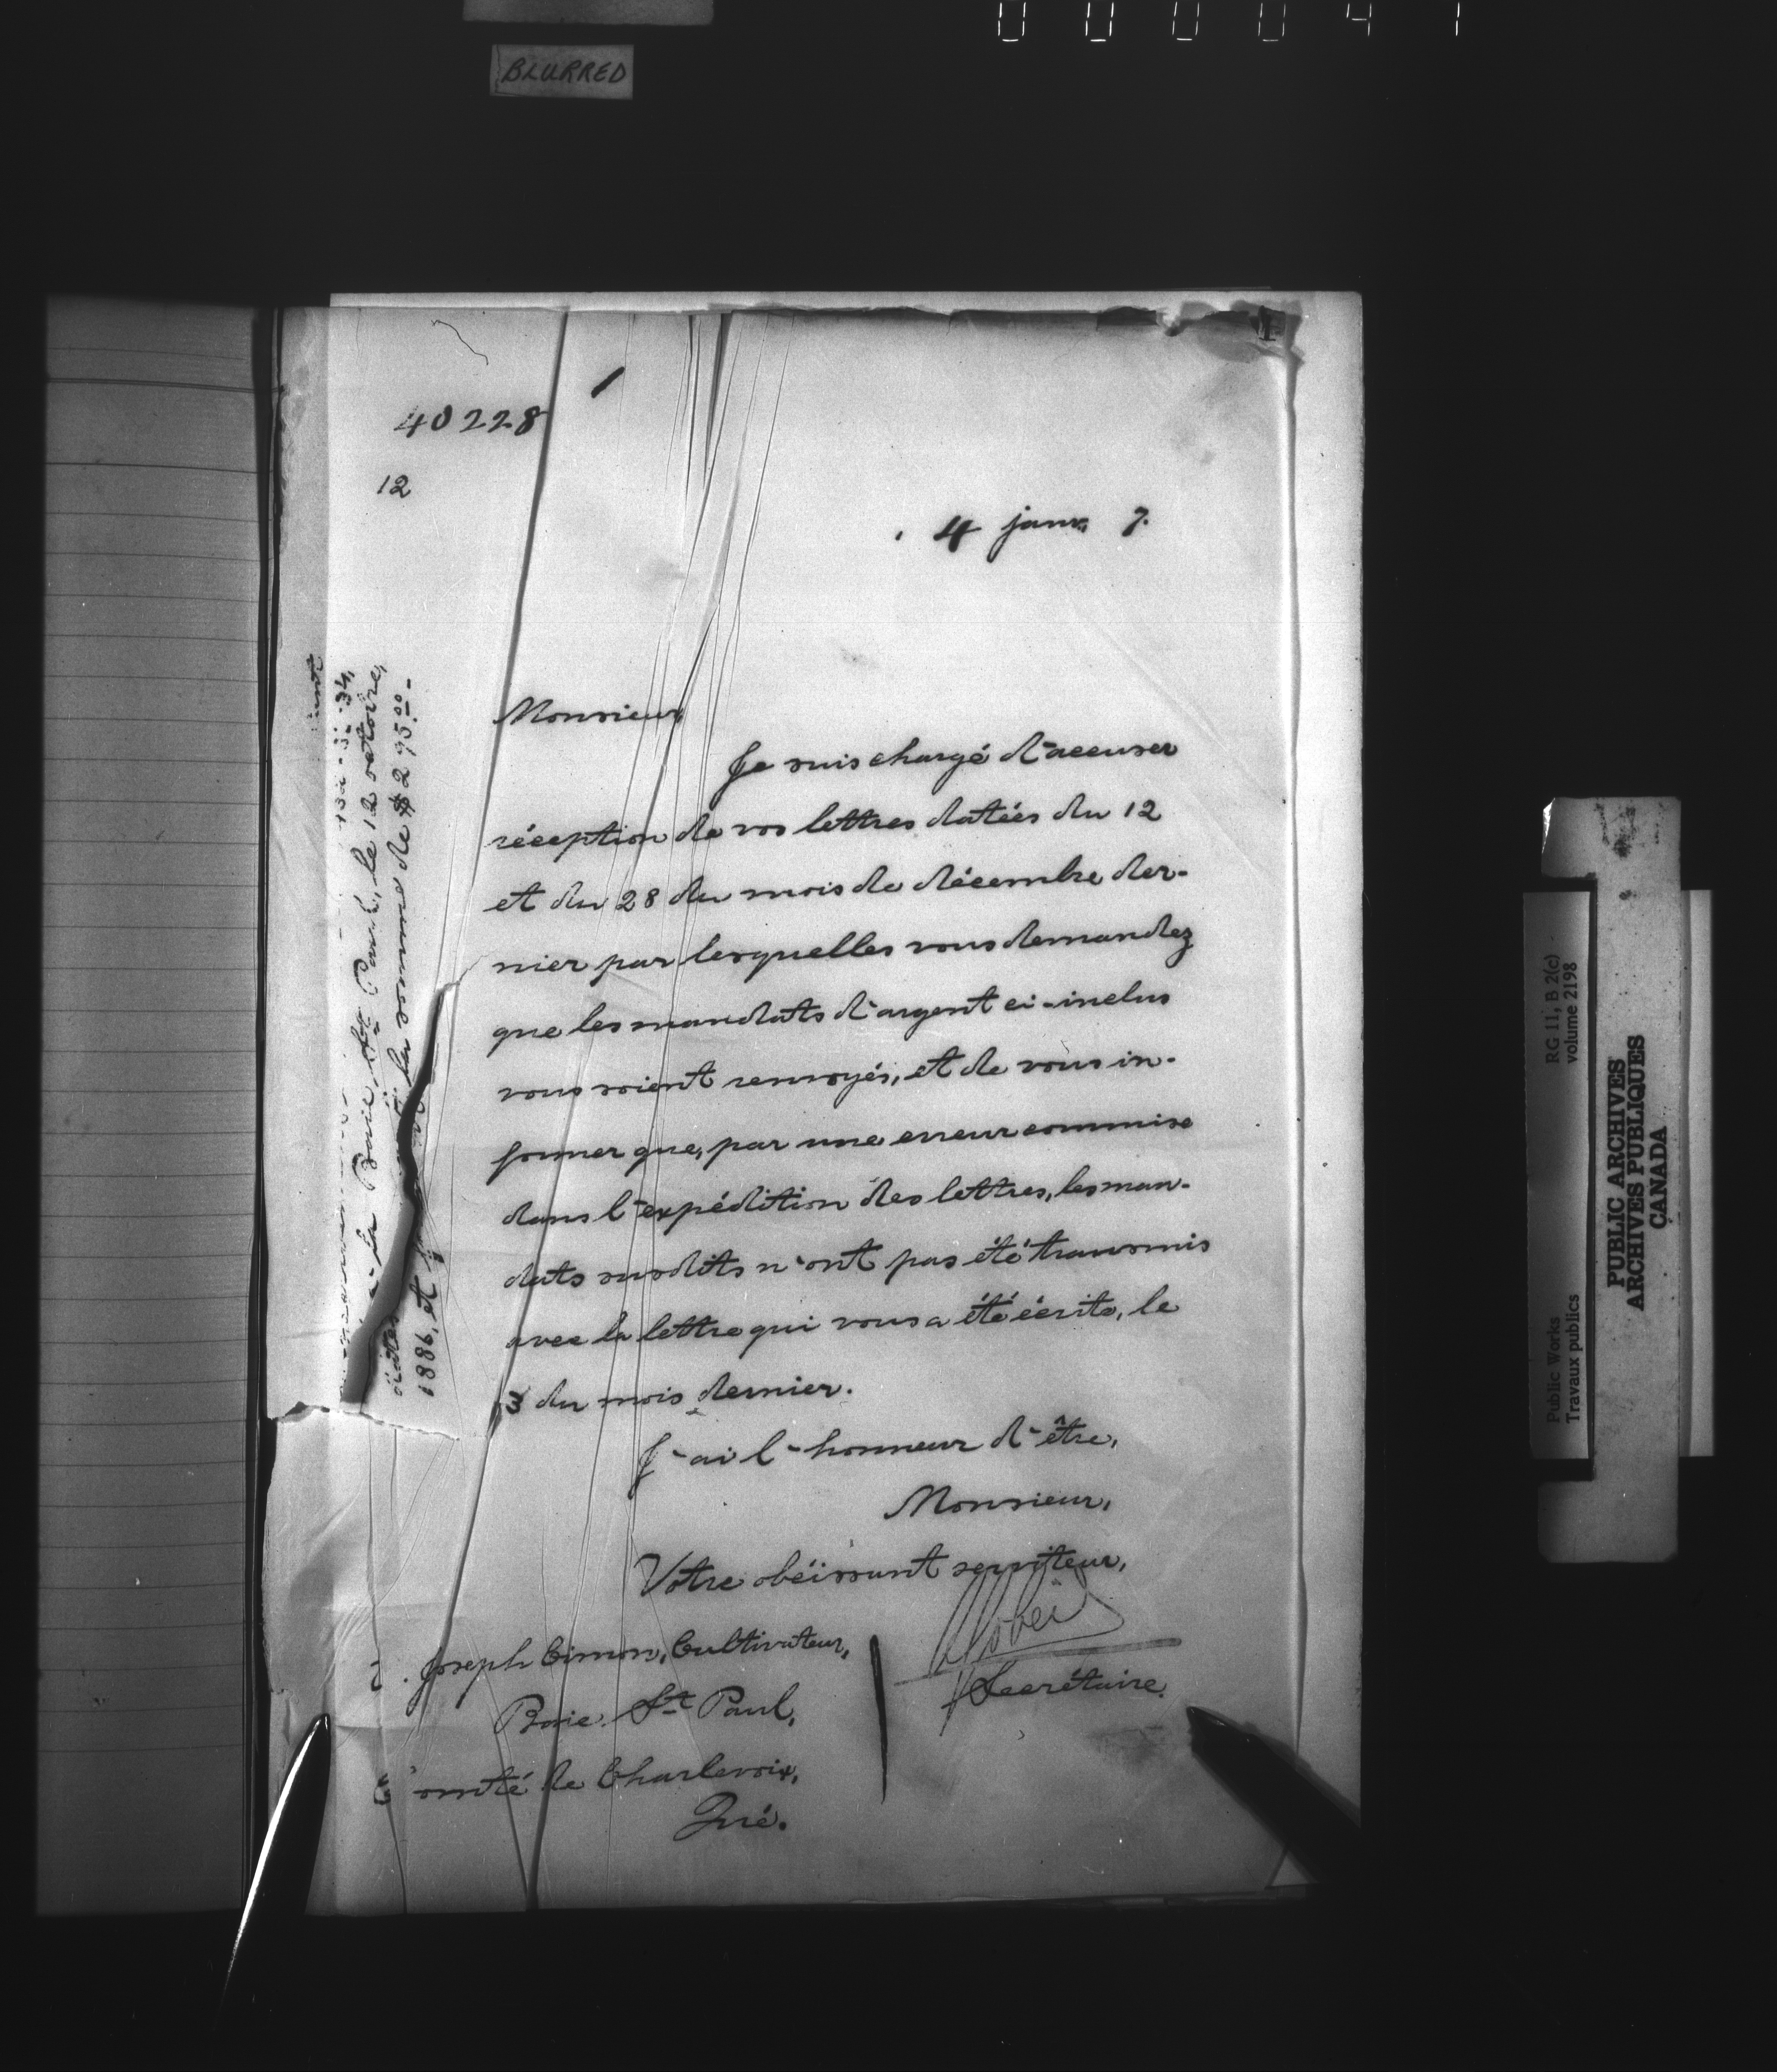 000041
BLURRED
1
40228
12
4 janv. 7.
Monsieur,
Je suis chargé d'accuser
réception de vos lettres datées du 12
et du 28 du mois de décembre der-
nier par lesquelles vous demandez
que les mandats d'argent ci-inclus
vous soient renvoyés, et de vous in-
former que, par une erreur commise
dans l'expédition des lettres, les man-
dats susdits n'ont pas été transmis
avec la lettre qui vous a été écrite, le
3 du mois dernier.
J'ai l'honneur d'être,
Monsieur,
Votre obéissant serviteur,
Gobeil
Secrétaire.
Joseph Cimon, Cultivateur,
Baie St Paul,
Comté de Charlevoix,
Qué.
la Baie St Paul, le 12 octobre,
1886, et la somme de $295.00-
RG 11, B 2(c)
volume 2198
Public Works
Travaux publics
PUBLIC ARCHIVES
ARCHIVES PUBLIQUES
CANADA